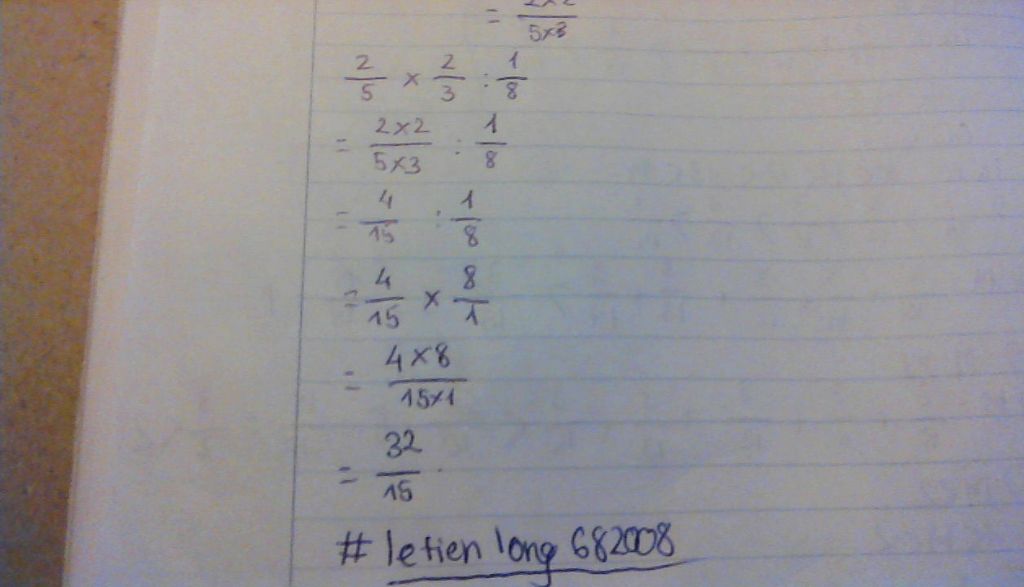 = 2x2/5x3
2/5 x 2/3 : 1/8
= 2x2/5x3 : 1/8
= 4/15 : 1/8
= 4/15 x 8/1
= 4x8/15x1
= 32/15
# letien long 682008